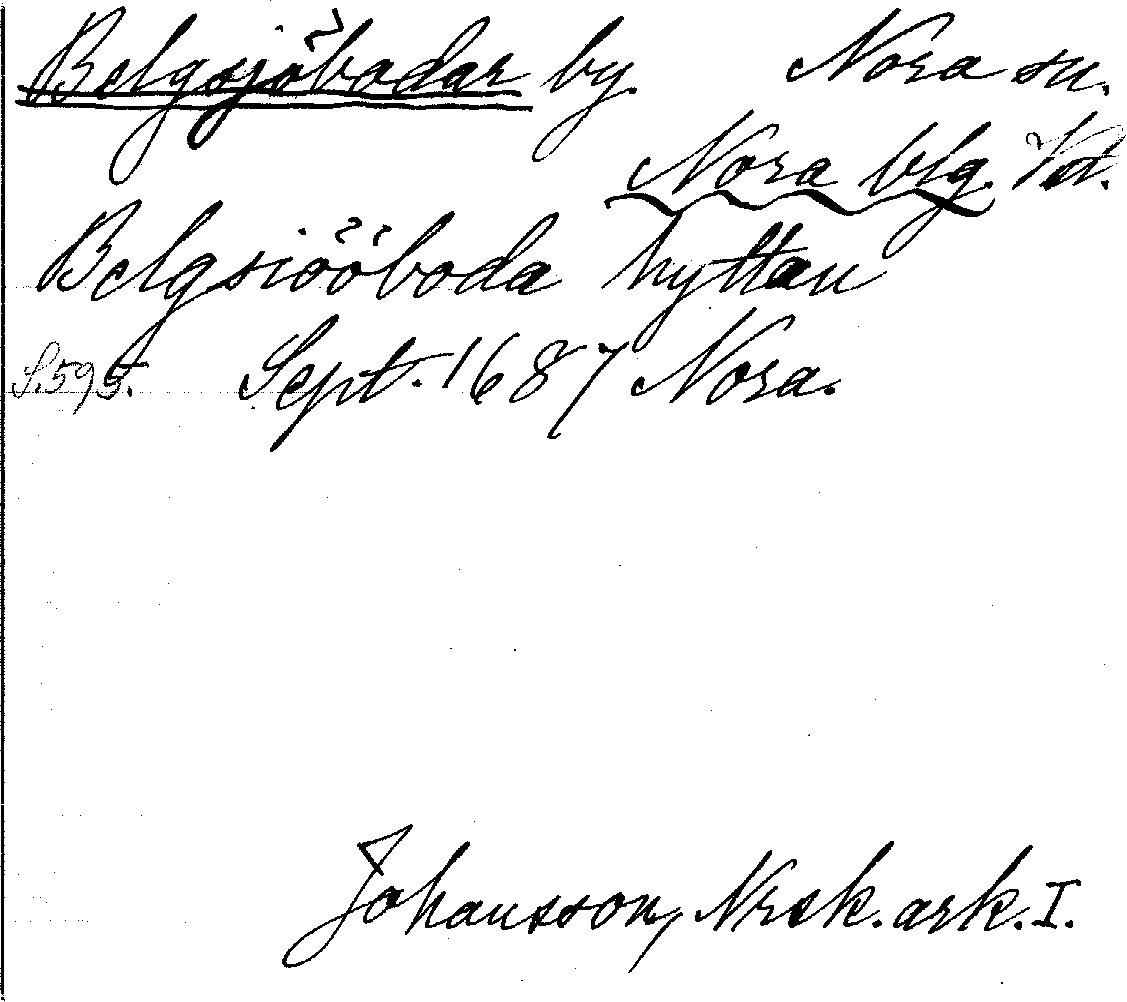 Belgsjöbodar by. Nora sn.
Nora blg. Vd.
Belgsiööboda hyttan
S. 595. Sept. 1687 Nora.
Johansson, Nrsk. ark. I.